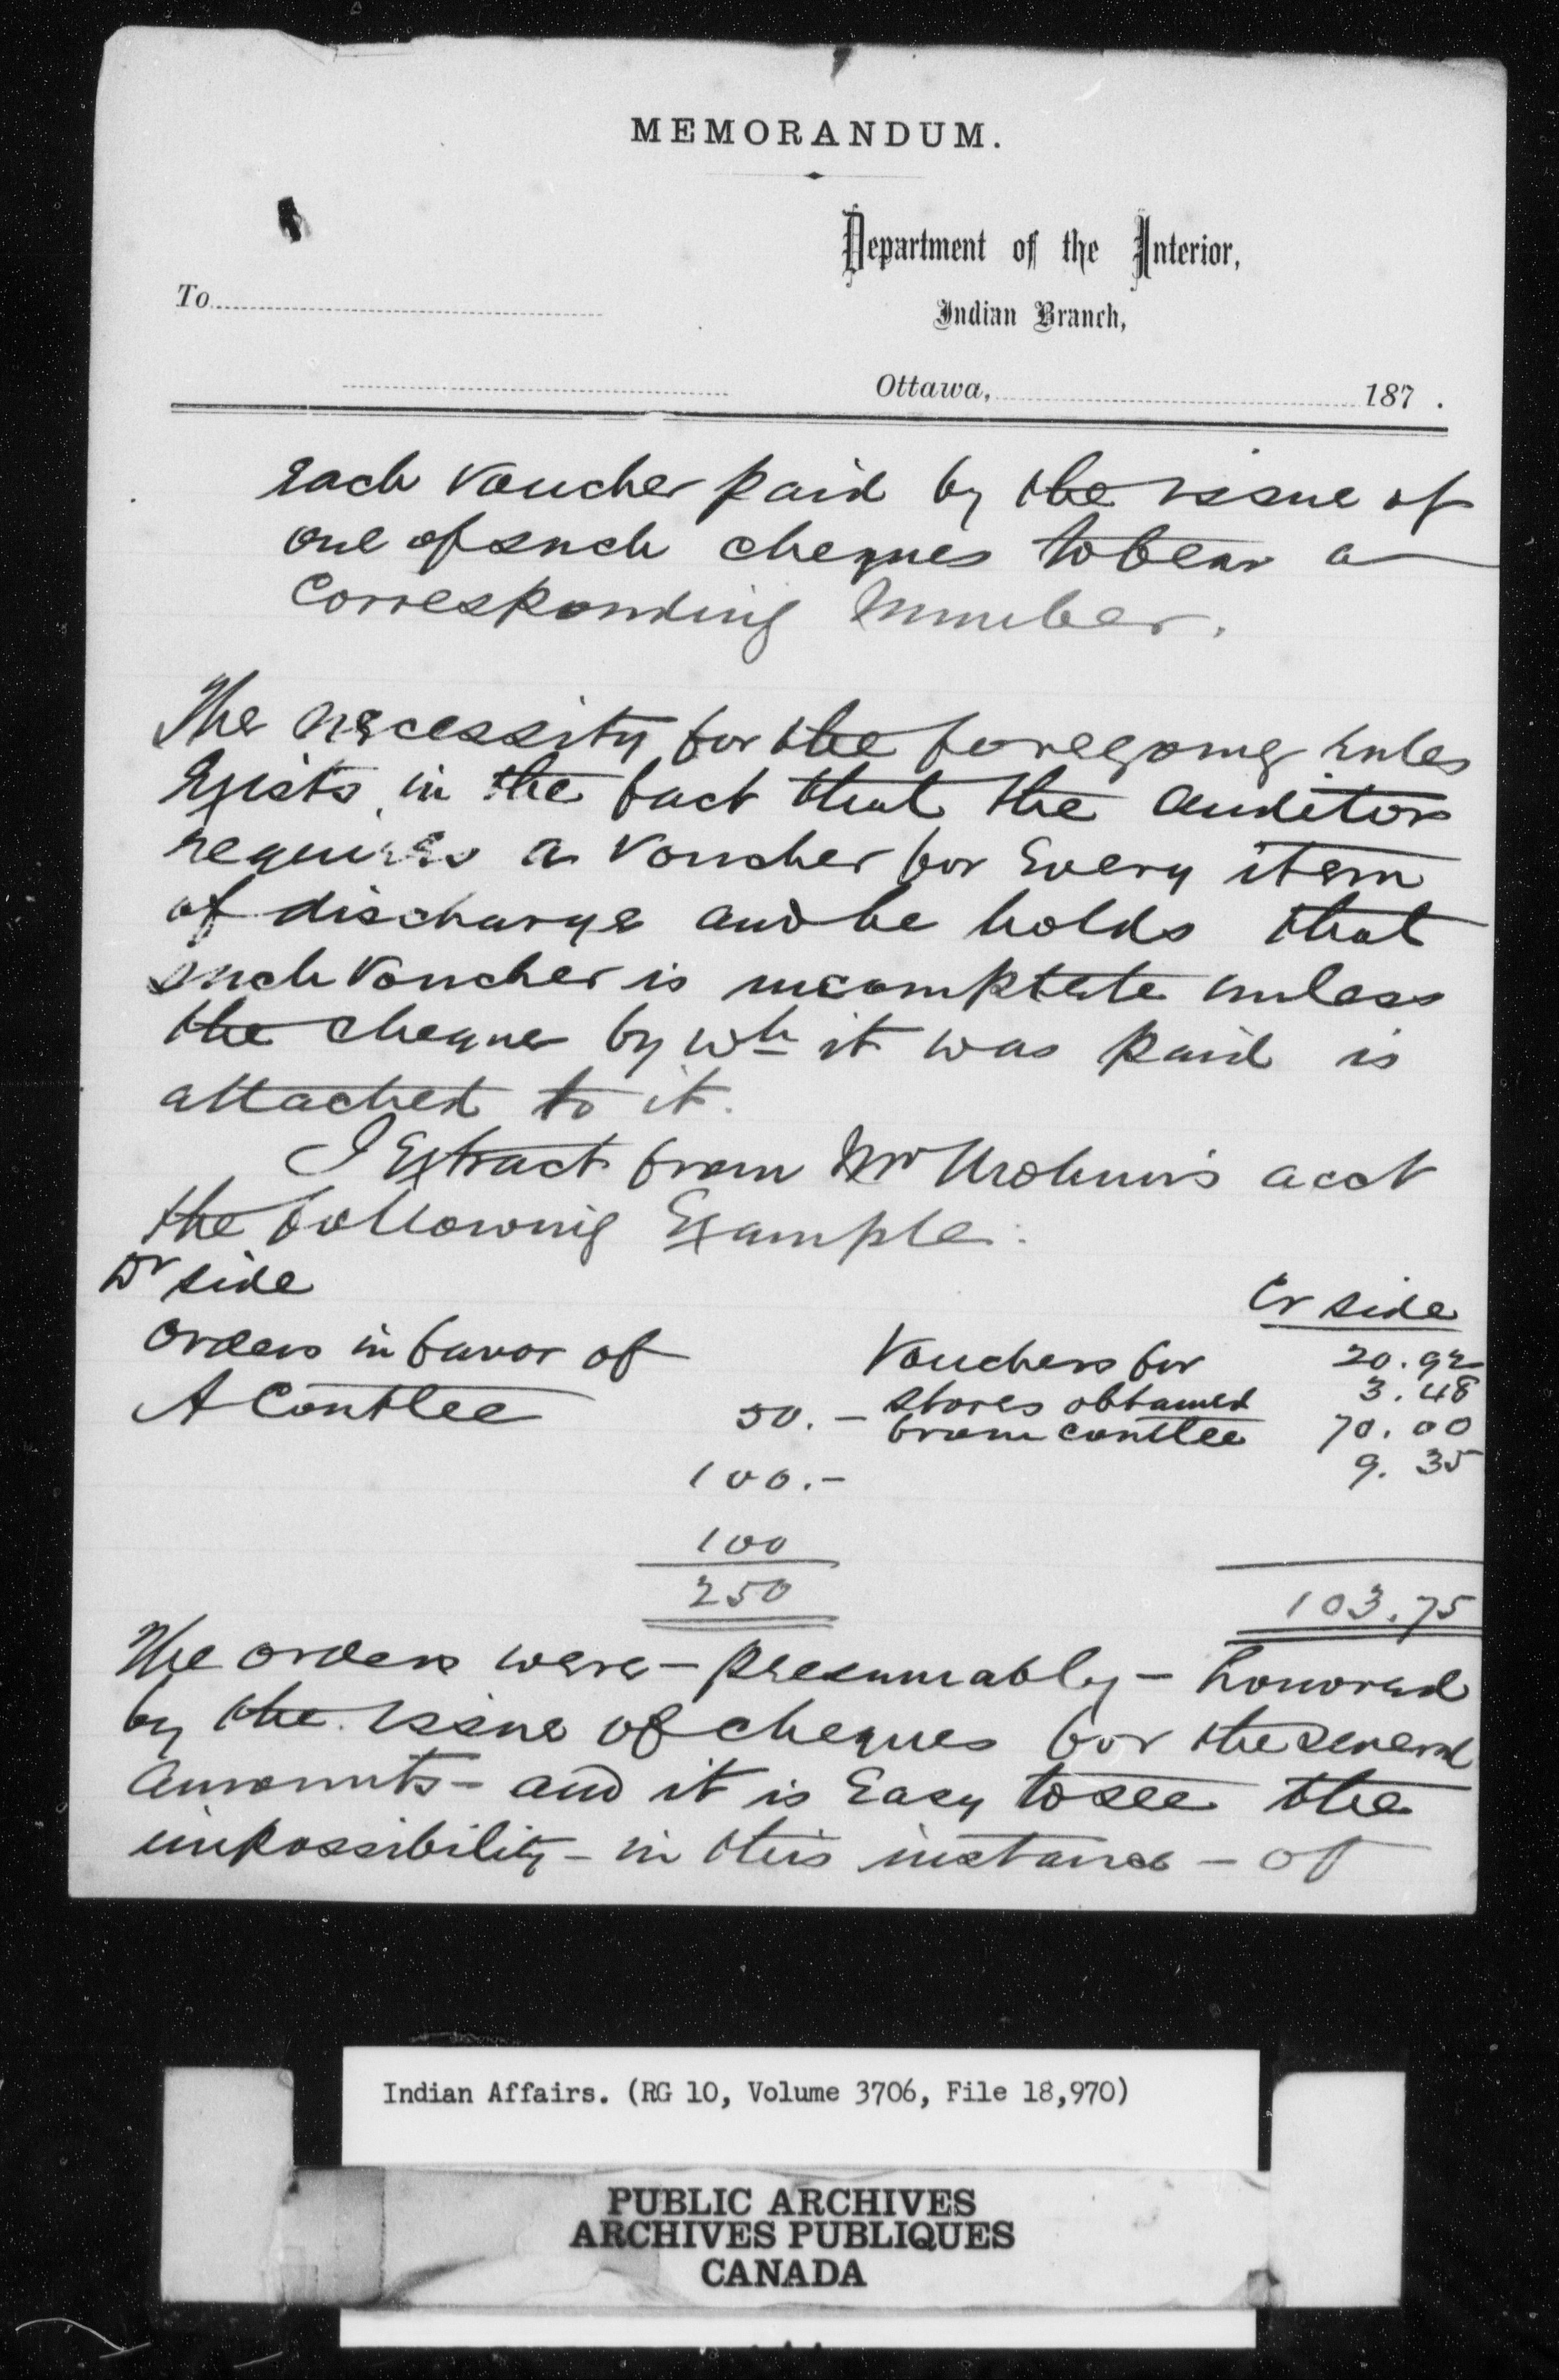 MEMORANDUM.
Department of the Interior,
Indian Branch,
To
Ottawa, 187 .
Each Voucher paid by the issue of
one of such cheques to bear a
Corresponding Number.
The necessity for the foregoing rules
Exists in the fact that the Auditor
requires a Voucher for Every item
of discharge and he holds that
such Voucher is incomplete unless
the cheque by wh it was paid is
attached to it.
I Extract from Mr acct
the following Example.
Dr side
Cr side
Orders in favor of
A Contlee
50. -
100. -
100
250
Vouchers for
stores obtained
from Contlee
20.92
3.48
70.00
9.35
103.75
The orders were - presumably - honored
by the issue of cheques for the several
Amounts - and it is Easy to see the
impossibility - in this instance - of
Indian Affairs. (RG 10, Volume 3706, File 18,970)
PUBLIC ARCHIVES
ARCHIVES PUBLIQUES
CANADA